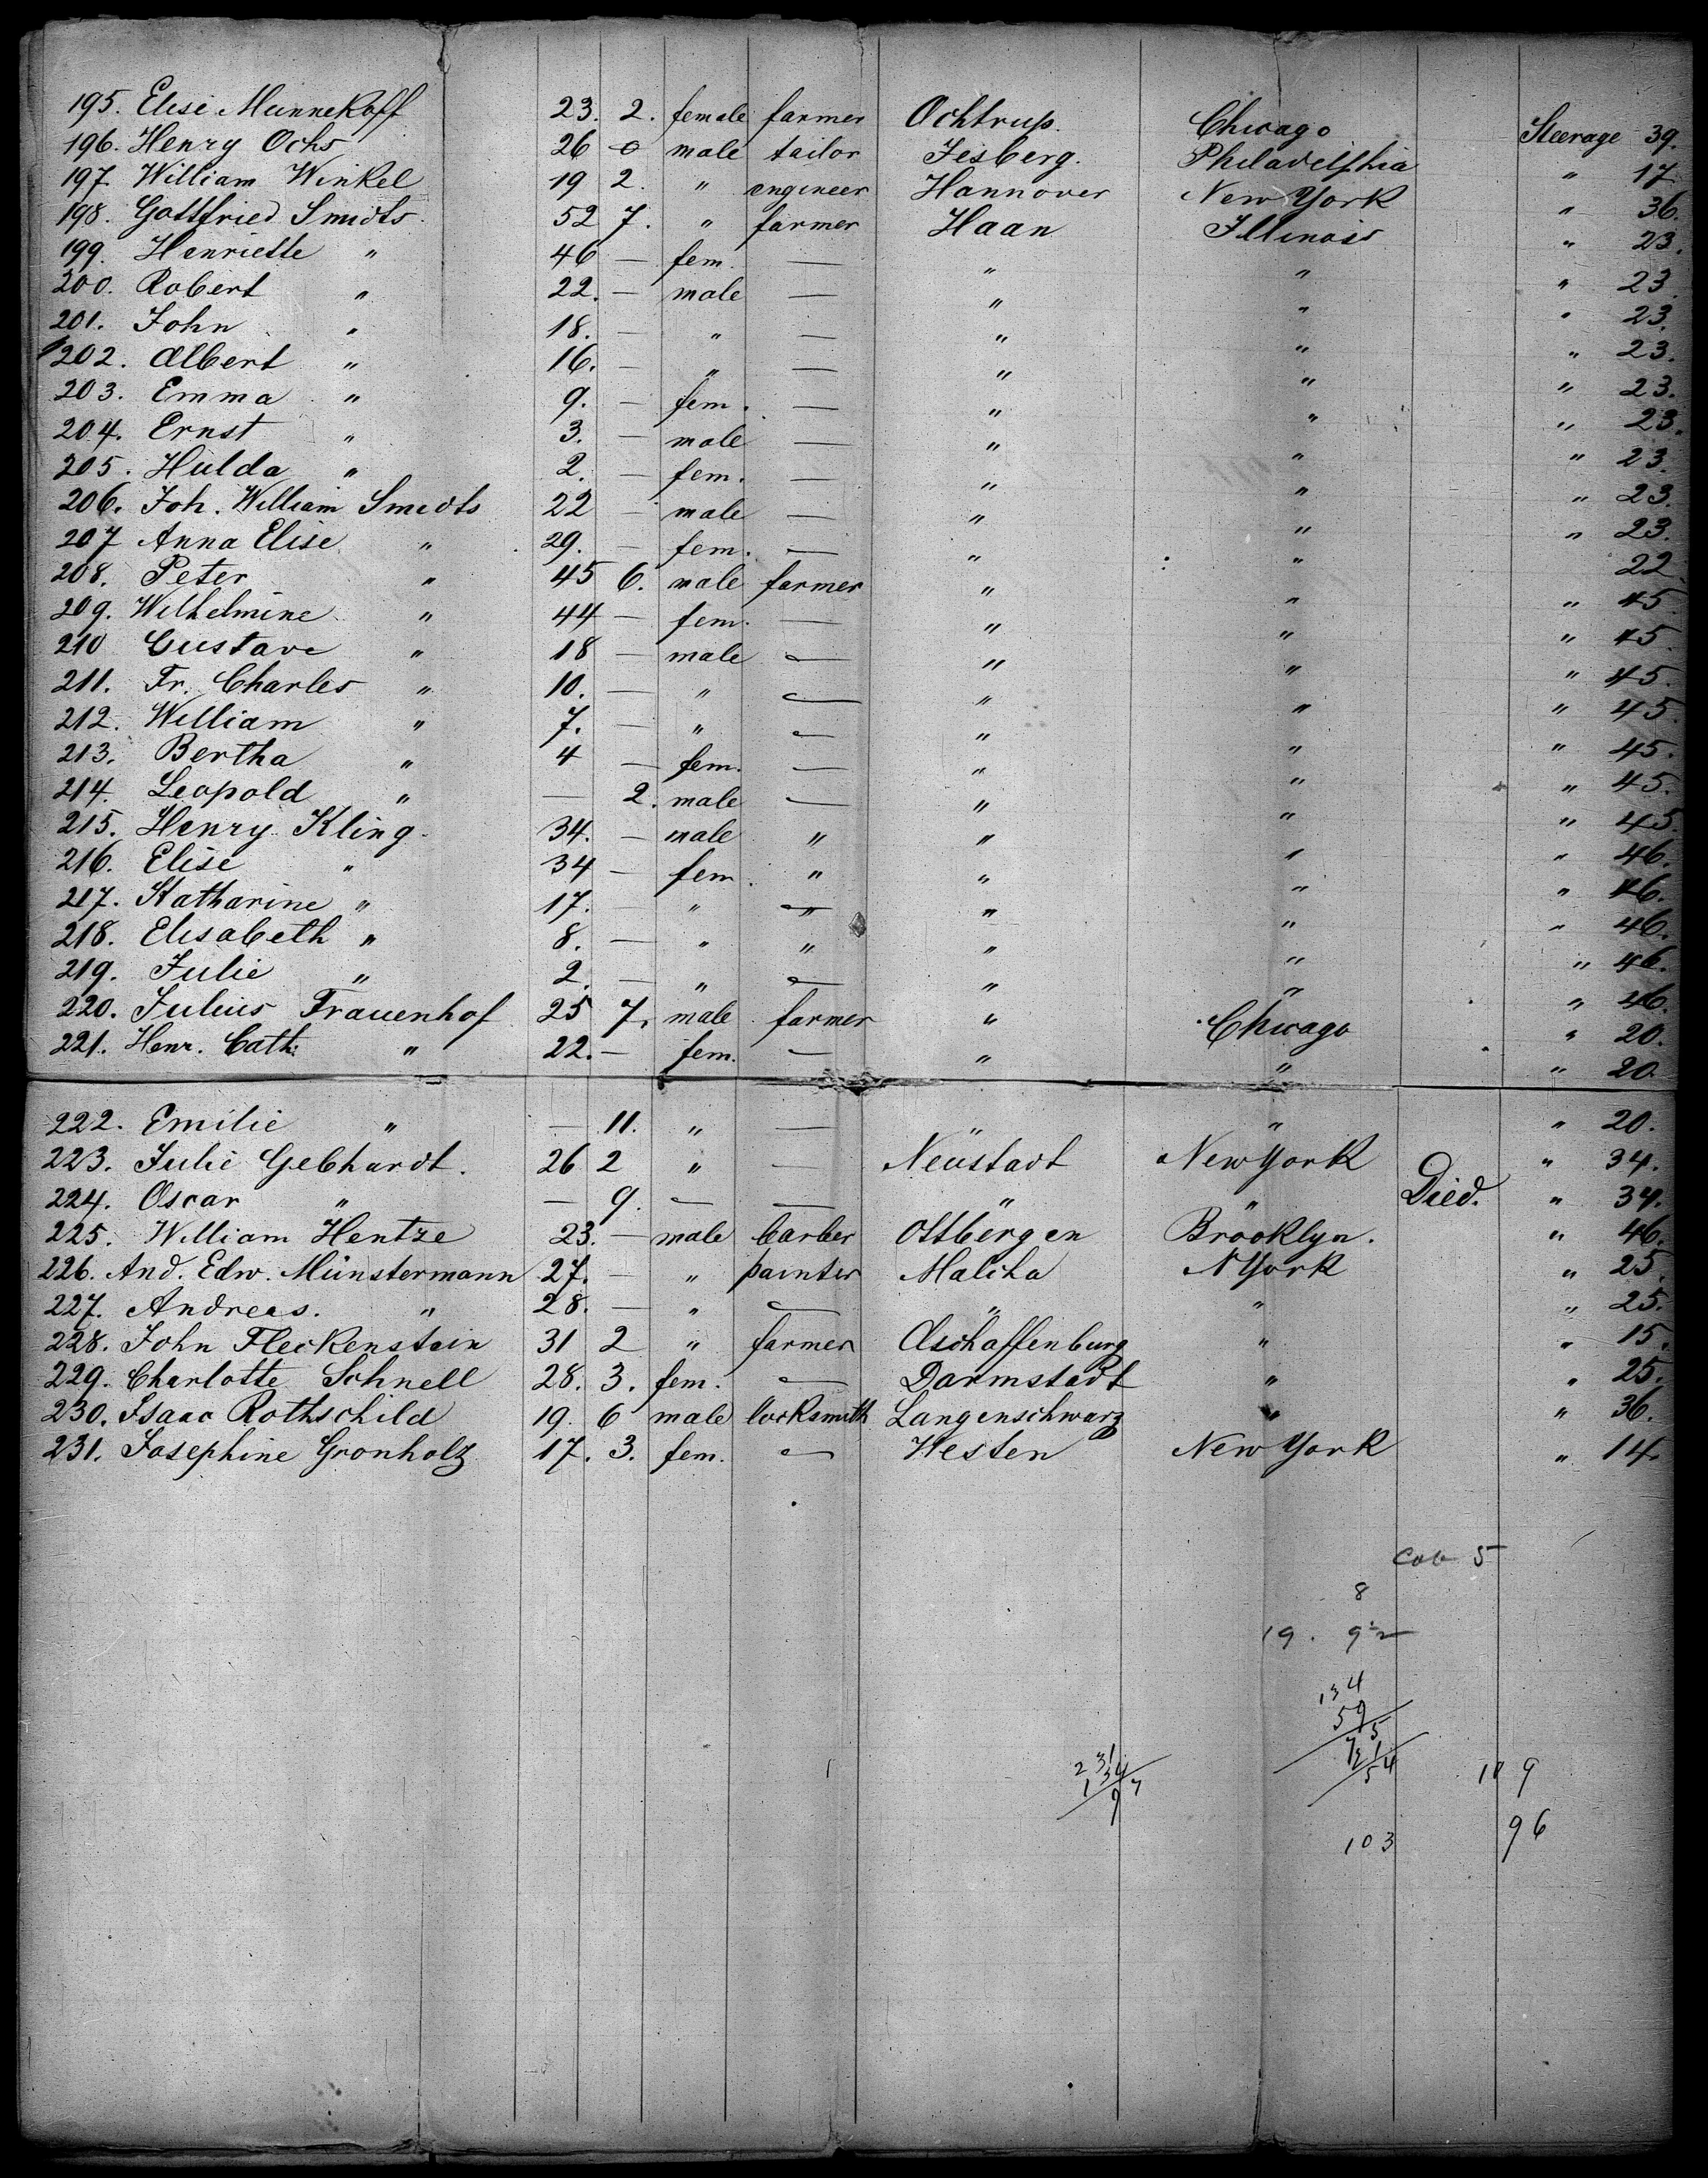 195. Elise Münnekoff 23. 2. female farmer Ochtrup. Chicago Steerage 39.
196. Henry Ochs 26 0 male tailor Jesberg. Philadelphia " 17
197. William Winkel 19 2. " engineer Hannover New York " 36.
198. Gottfried Smidts. 52 7. " farmer Haan Illinois " 23.
199. Henriette " 46 — fem. — " " " 23.
200. Robert " 22. — male — " " " 23.
201. John " 18. — " — " " " 23.
202. Albert " 16. — " — " " " 23.
203. Emma " 9. — fem. — " " " 23.
204. Ernst " 3. — male — " " " 23.
205. Hulda " 2. — fem. — " " " 23.
206. Joh. William Smidts 22 — male — " " " 23.
207 Anna Elise " 29. — fem. — " " 22.
208. Peter " 45 6. male farmer " " " 45.
209. Wilhelmine " 44 — fem. — " " " 45.
210 Gustave " 18 — male — " " " 45.
211. Fr. Charles " 10. — " — " " " 45.
212. William " 7. — " — " " " 45.
213. Bertha " 4 — fem. — " " " 45.
214. Leopold " — 2. male — " " " 45.
215. Henry Kling. 34. — male " " " " 46.
216. Elise " 34 — fem. " " " " 46.
217. Katharine " 17. — " " " " " 46.
218. Elisabeth " 8. — " " " " " 46.
219. Julie " 2. — " — " " " 46.
220. Julius Frauenhof 25 7. male farmer " Chicago " 20.
221. Henr. Cath. " 22. — fem. — " " " 20.
222. Emilie " — 11. " — " " " 20.
223. Julie Gebhardt. 26 2 " — Neustadt New York " 34.
224. Oscar " — 9. — — " " Died. " 34.
225. William Hentze 23. — male barber Ottbergen Brooklyn. " 46.
226. And. Edw. Münstermann 27. — " painter Malcha N York " 25.
227. Andreas. " 28. — " — " " " 25.
228. John Fleckenstein 31 2 " farmer Aschaffenburg " " 15.
229. Charlotte Schnell 28. 3. fem. — Darmstadt " " 25.
230. Isaac Rothschild 19. 6 male locksmith Langenschwarz " " 36.
231. Josephine Gronholz 17. 3. fem. — Westen New York " 14.
Cab 5
8
19. 92
134
59
231
134
97
109
103
96